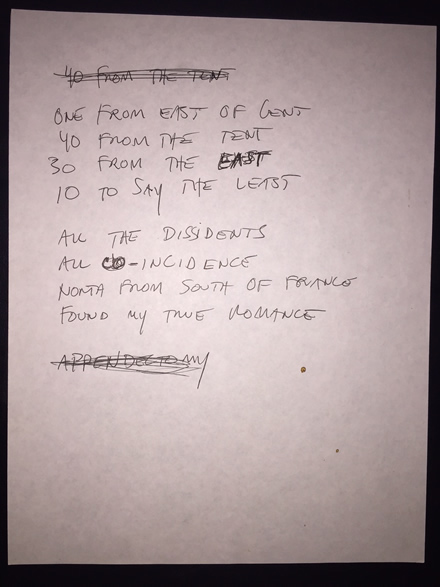 40 FROM THE TENT
ONE FROM EAST OF GENT
40 FROM THE TENT
30 FROM THE EAST
10 TO SAY THE LEAST
ALL THE DISSIDENTS
ALL CO-INCIDENCE
NORTH FROM SOUTH OF FRANCE
FOUND MY TRUE ROMANCE
APPENDECTOMY